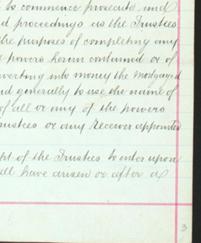 to commence prosecute and
d proceedings as the Trustees
the purposes of completing any
powers herein contained or of
verting into money the Mortgaged
nd generally to use the name of
of all or any of the powers
rustees or any Receiver appointed
pt of the Trustees to enter upon
all have arisen or after a
3